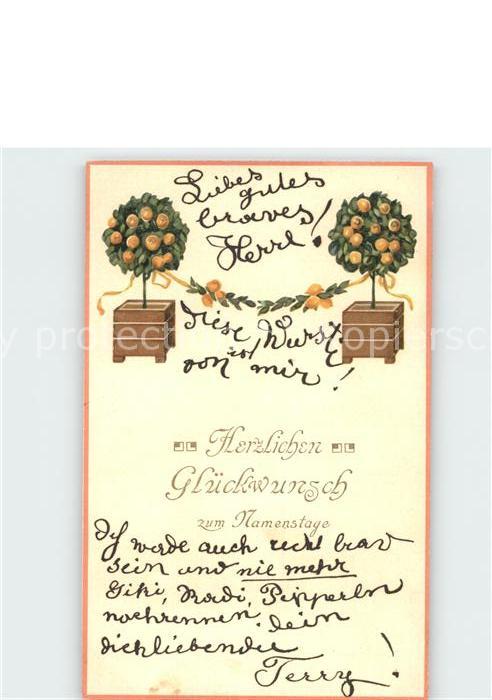 Liebes
gutes
braves
Herrl!
diese Wurst
von mir!
Herzlichen
Glückwunsch
zum Namenstage
Ich werde auch recht brav
sein und nie mehr
Giki, Radi, Pepperln
nachrennen. Dein
dichliebender
Terry!